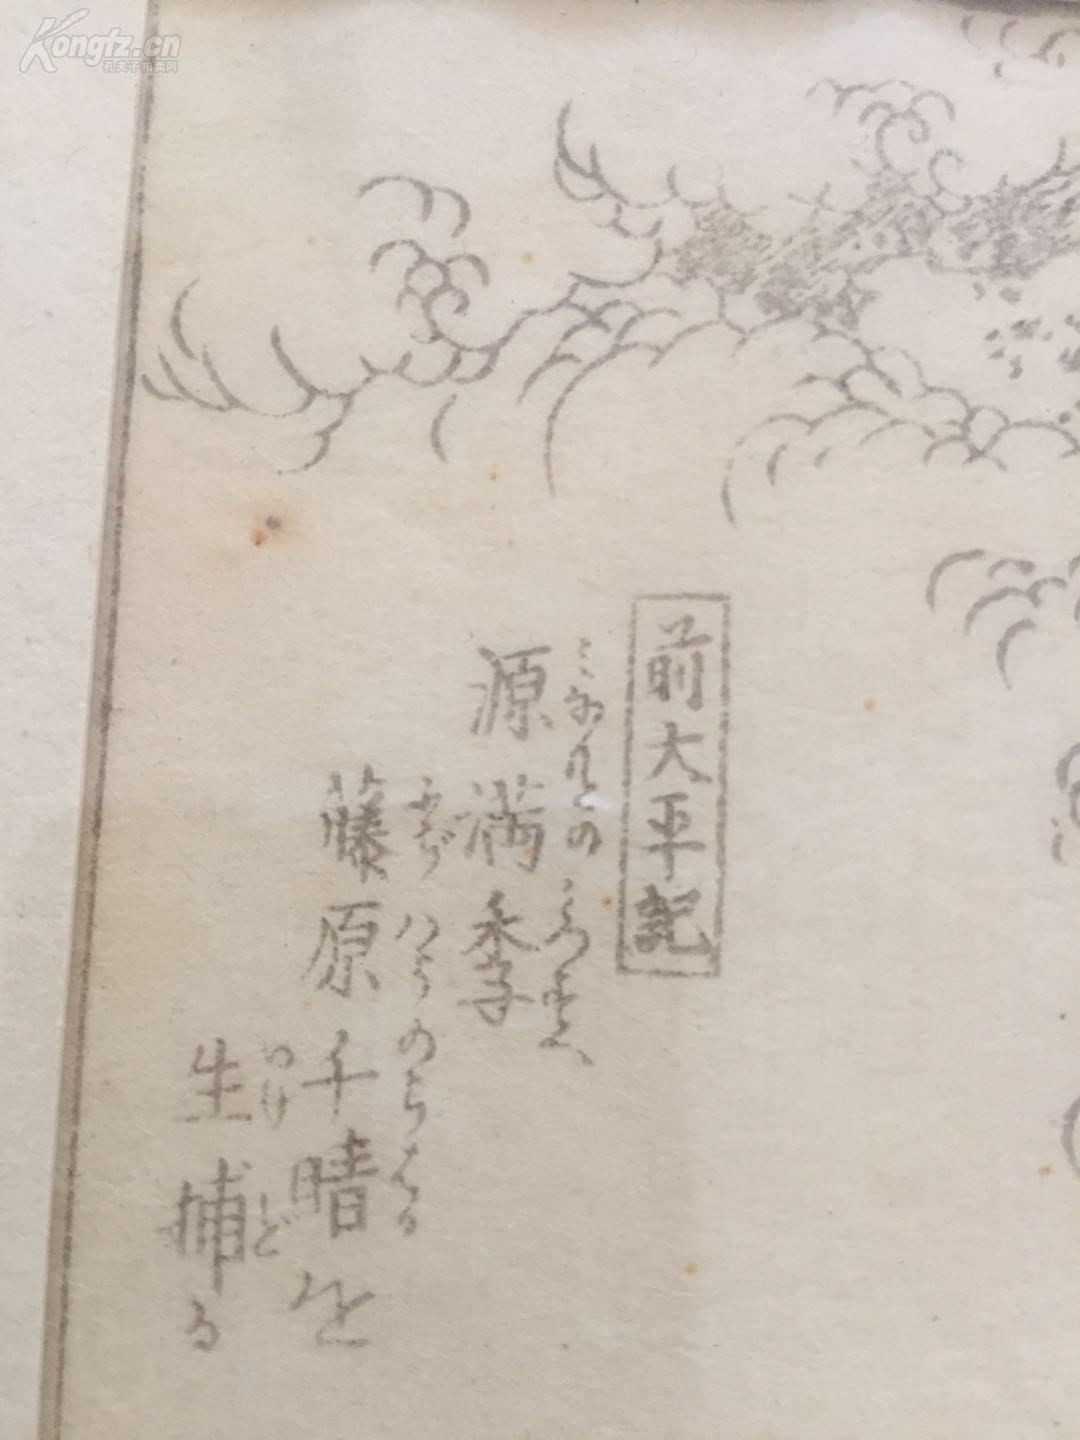 Kongfz.cn
孔夫子拍卖网
前大平記
みなもとのみつすへ
源満季
ふぢハらのちはる
藤原千晴を
いけど
生捕る